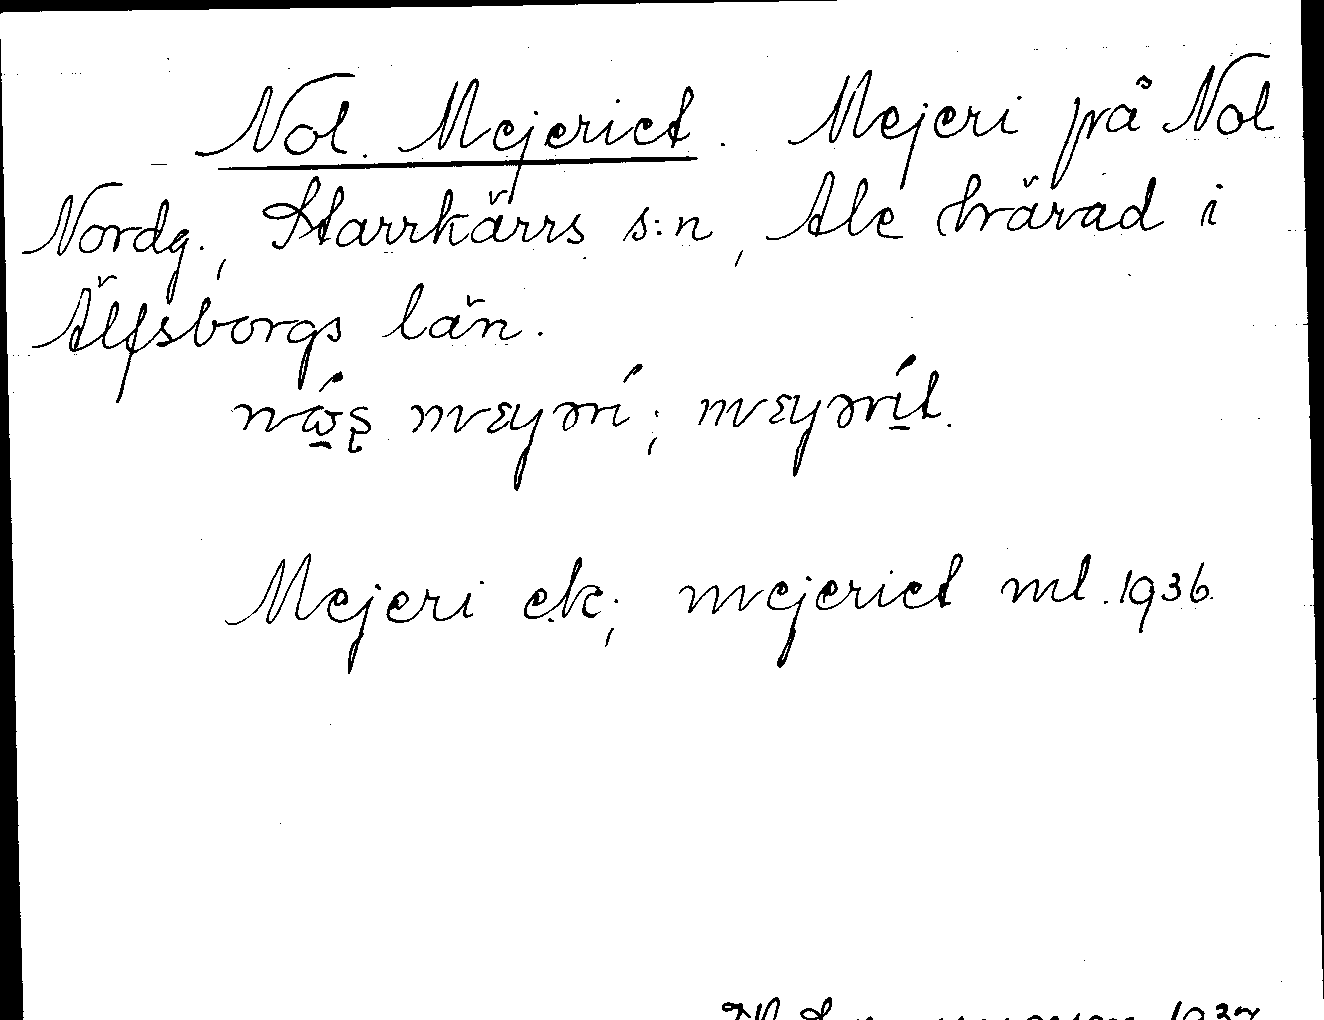 Nol. Mejeriet. Mejeri på Nol
Nordg., Starrkärrs s:n, Ale härad i
Älfsborgs län.
Mejeri ek; mejeriet ml. 1936.
1937